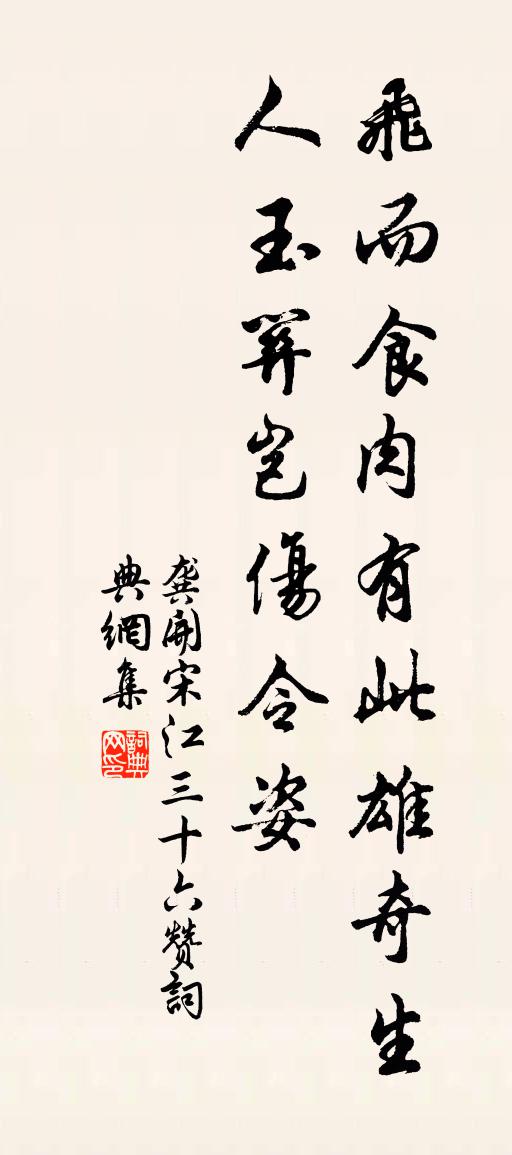 飛而食肉有此雄奇生
人玉昇豈傷令姿
龔開宋江三十六贊詞
典網集
詞典
网印